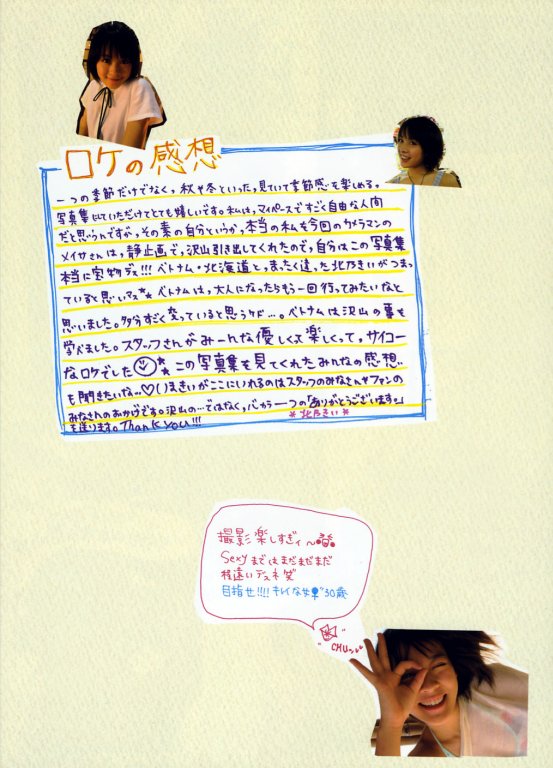 ロケの感想
一つの季節だけでなく、秋や冬といった、見ていて季節感を楽しめる。
写真集にしていただけてとても嬉しいです。私は、マイペースですごく自由な人間
だと思うんですが、その素の自分というか、本当の私を今回のカメラマンの
メイサさんは、静止画で、沢山引き出してくれたので、自分はこの写真集
本当に宝物デス!!! ベトナム・北海道と、まったく違った北乃きいがつまっ
ていると思いマス** ベトナムは、大人になったらもう一回行ってみたいなと
思いました。多分すごく変っていると思うケド…。ベトナムは沢山の事を
学べました。スタッフさんがみーんな優しくって楽しくって、サイコー
なロケでした この写真集を見てくれたみんなの感想
も聞きたいな..♡ いまきいがここにいれるのはスタッフのみなさんやファンの
みなさんのおかげです。沢山の…ではなく、心から一つの「ありがとうございます。」
を送ります。Thank you!!!
*北乃きい*
撮影楽しすぎィ〜
Sexyまではまだまだまだ
程遠いデスネ笑
目指せ!!!! キレイな女 30歳
"CHU"